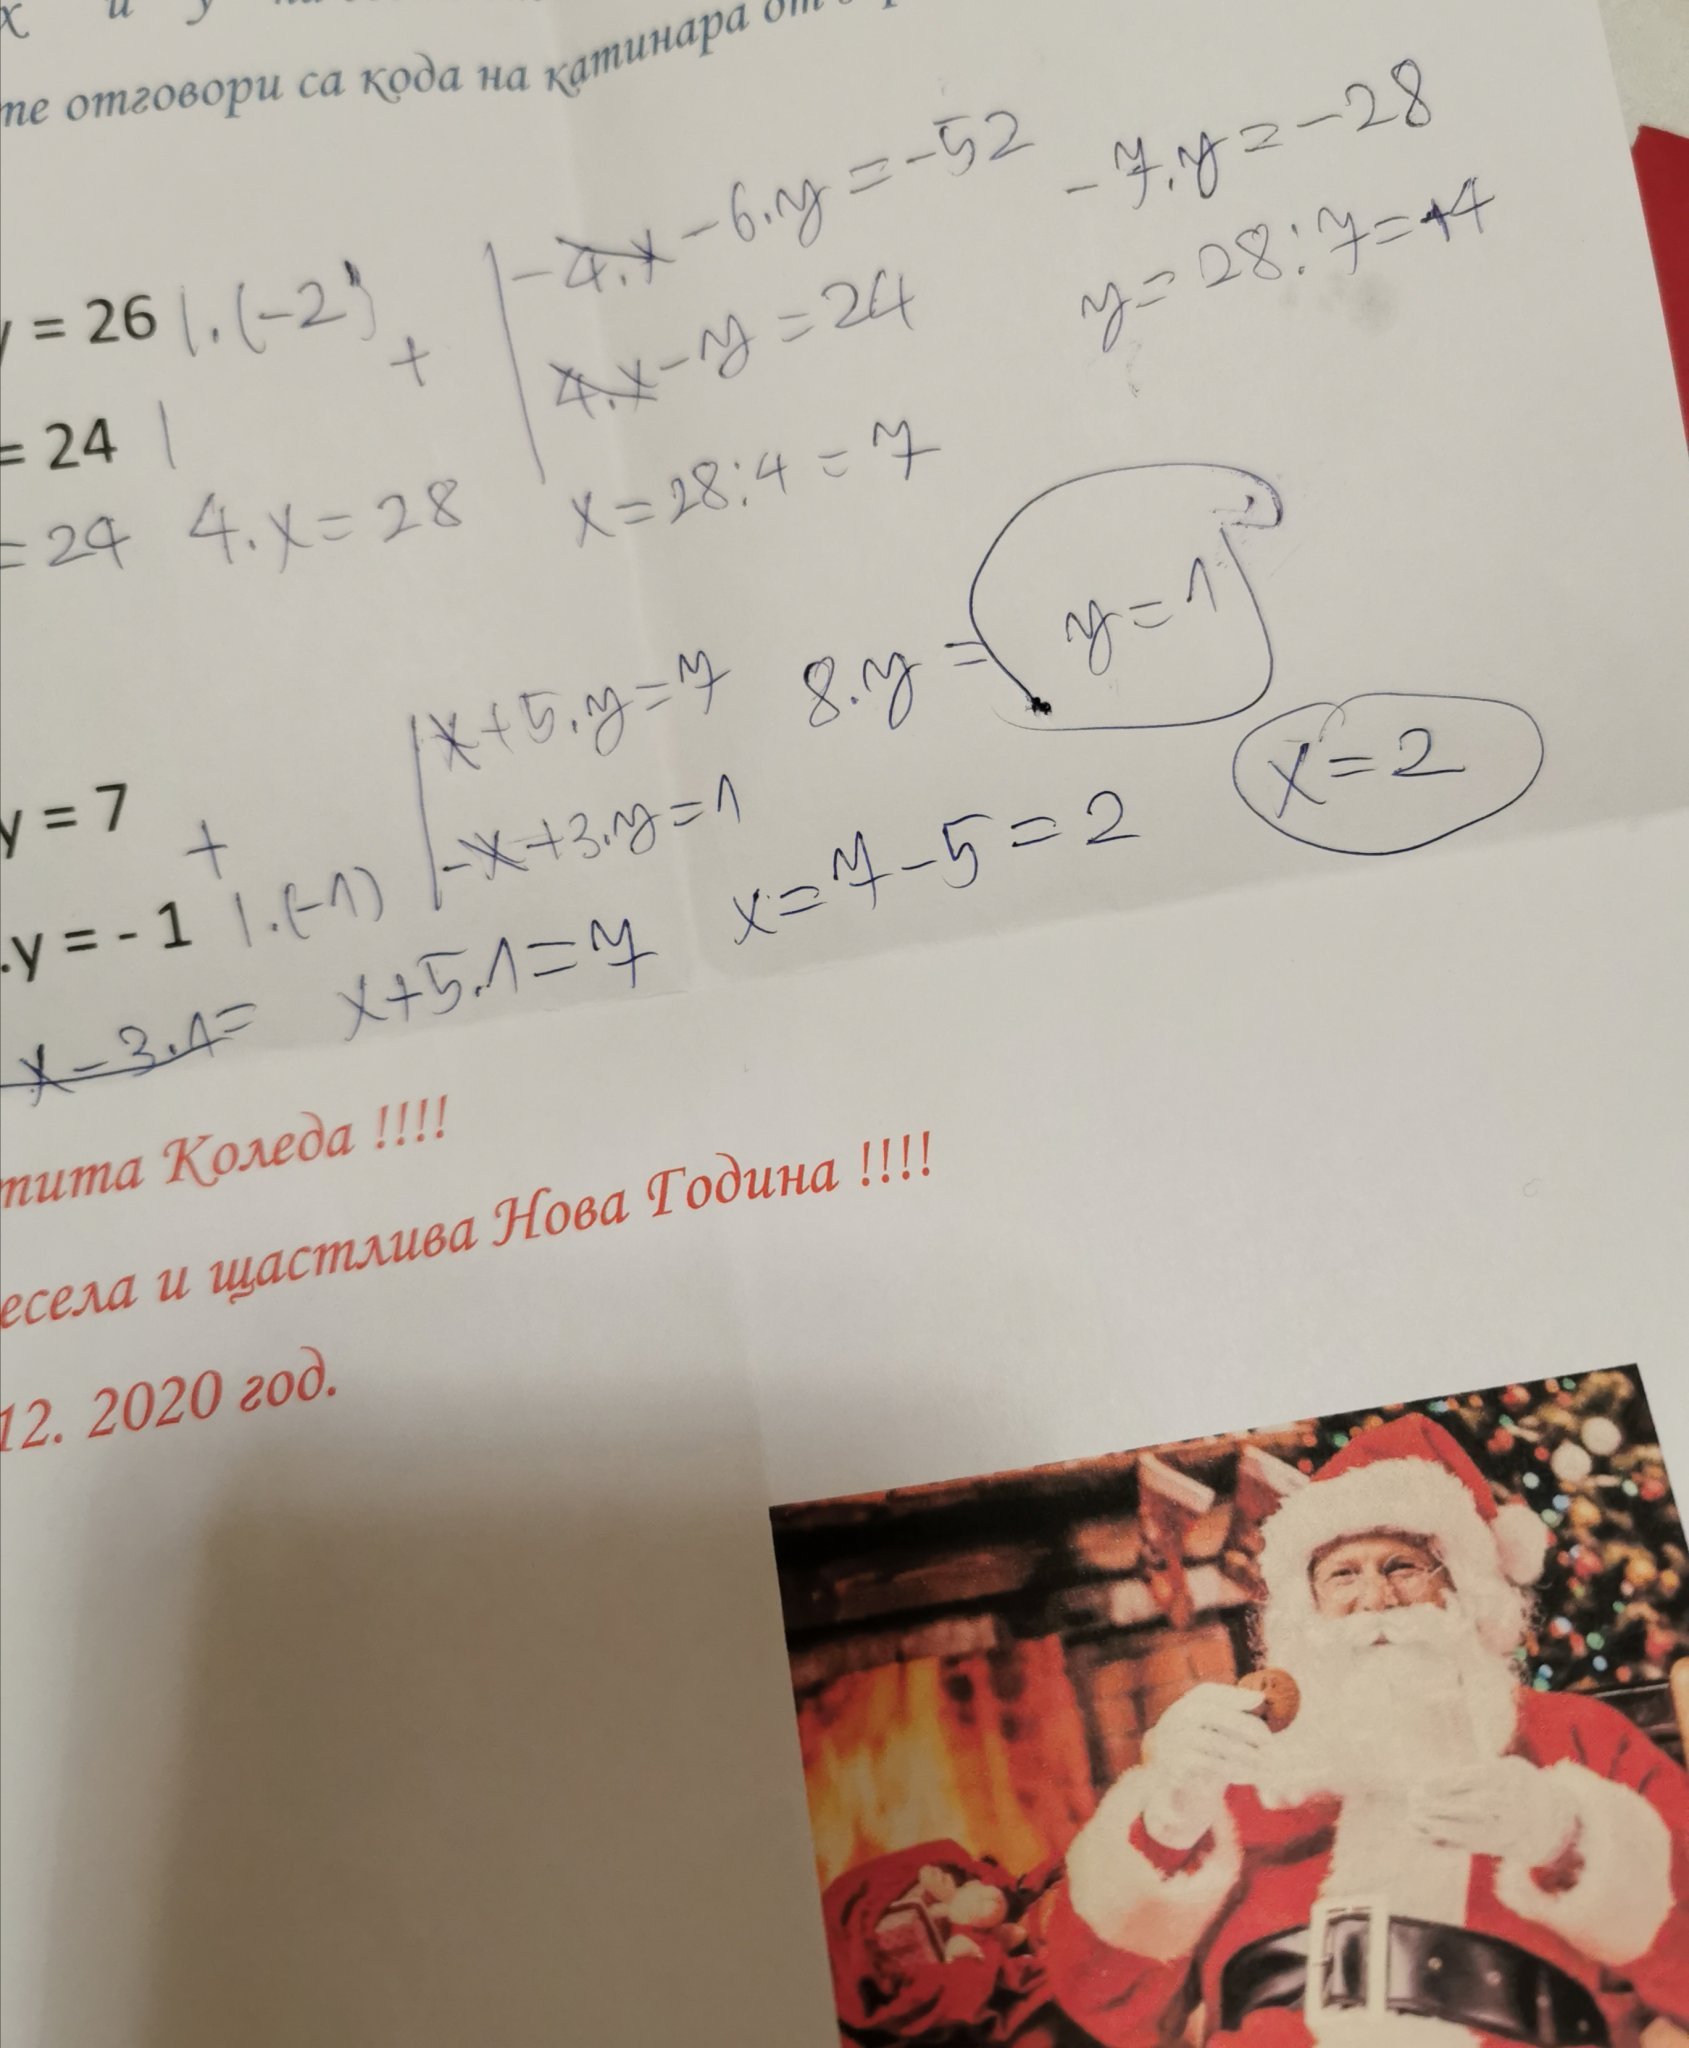 те отговори са кода на катинара от
y = 26 |.(-2)
+
-4.x - 6.y = -52
4.x - y = 24
-7.y = -28
y = 28:7 = 4
= 24 |
= 24 4.x = 28 x = 28:4 = 7
y = 7
+
.y = - 1 |.(-1)
x + 5.y = 7
-x + 3.y = 1
8.y =
y = 1
x - 3.1 = x + 5.1 = 7 x = 7 - 5 = 2
x = 2
тита Коледа !!!!
есела и щастлива Нова Година !!!!
12. 2020 год.